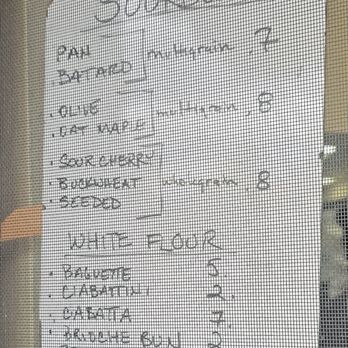 PAN
BATARD multigrain . 7
. OLIVE
. OAT MAPLE multigrain . 8
. SOUR CHERRY
. BUCKWHEAT wholegrain . 8
. SEEDED
WHITE FLOUR
. BAGUETTE 5.
. CIABATTINI 2.
. CIABATTA 7.
. BRIOCHE BUN 2